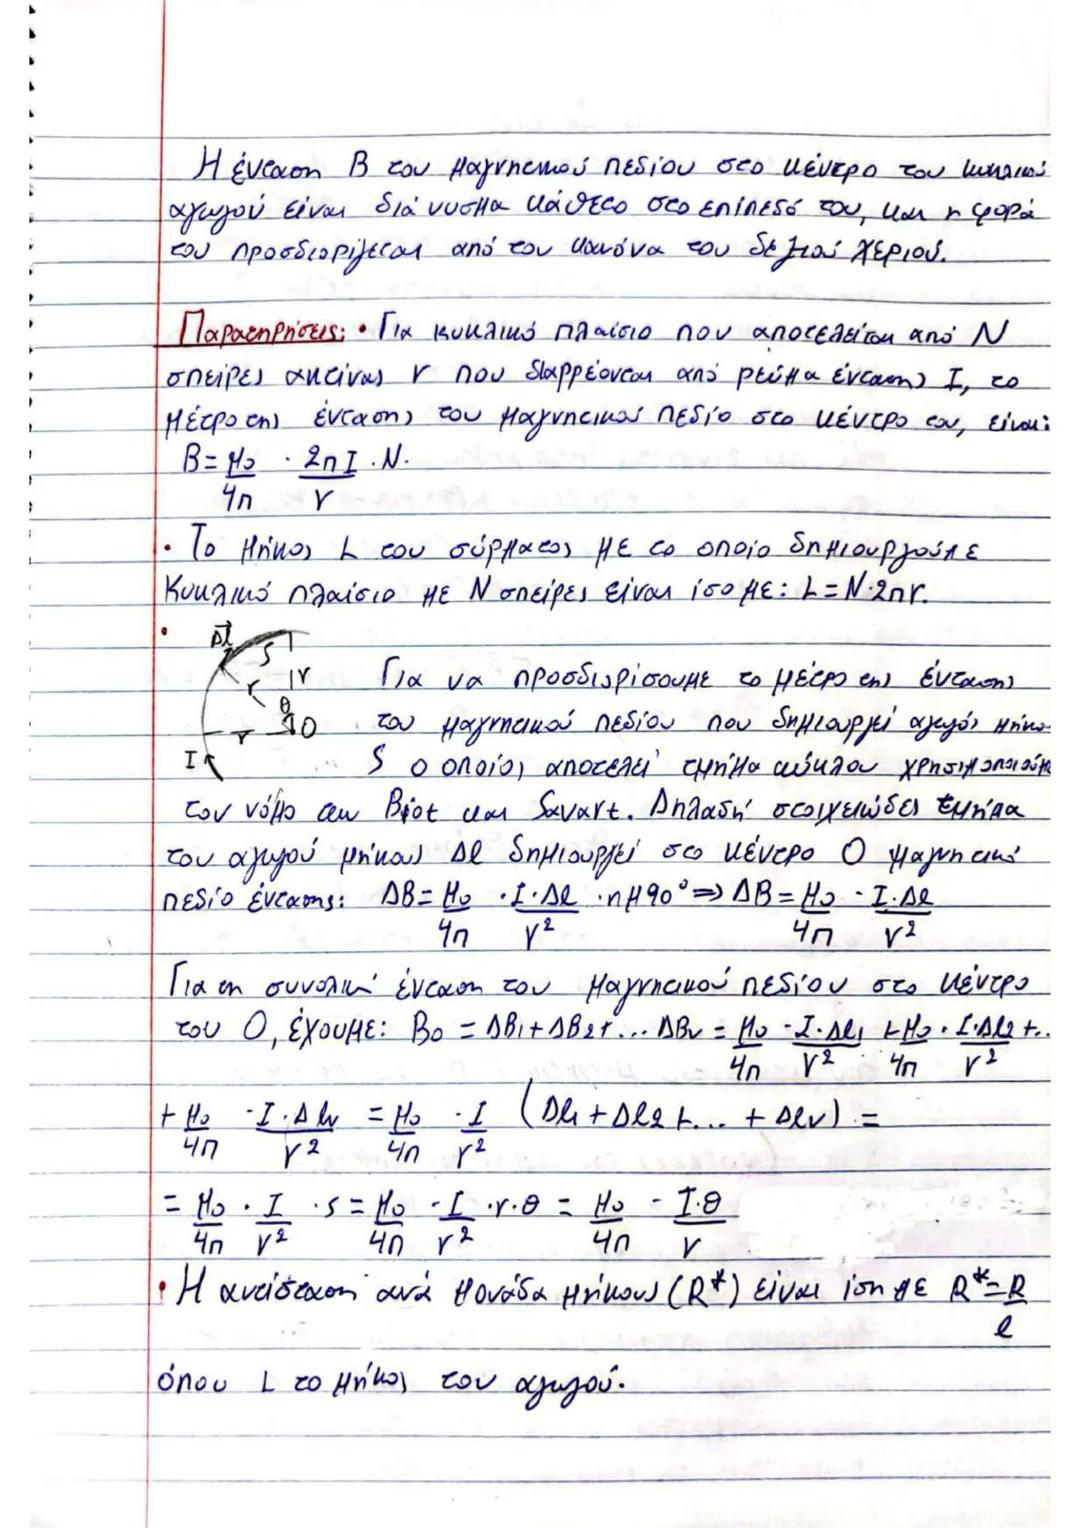 Η ένταση Β του μαγνητικού πεδίου στο κέντρο του κυκλικού
αγωγού είναι διάνυσμα κάθετο στο επίπεδό του, και η φορά
του προσδιορίζεται από τον κανόνα του δεξιού χεριού.
Παρατηρήσεις: • Για κυκλικό πλαίσιο που αποτελείται από Ν
σπείρες ακτίνας r που διαρρέονται από ρεύμα έντασης Ι, το
μέτρο της έντασης του μαγνητικού πεδίο στο κέντρο του, είναι:
Β = μο/4π · 2πΙ/r · Ν.
• Το μήκος L του σύρματος με το οποίο δημιουργούμε
κυκλικό πλαίσιο με Ν σπείρες είναι ίσο με: L = N·2πr.
•
Δl S r r θ O r I
Για να προσδιορίσουμε το μέτρο της έντασης
του μαγνητικού πεδίου που δημιουργεί αγωγός μήκο
S ο οποίος αποτελεί τμήμα κύκλου χρησιμοποιούμε
τον νόμο των Biot και Savart. Δηλαδή στοιχειώδες τμήμα
του αγωγού μήκους Δl δημιουργεί στο κέντρο Ο μαγνητικό
πεδίο έντασης: ΔΒ = μο/4π · Ι·Δl/r² · ημ90° ⇒ ΔΒ = μο/4π · Ι·Δl/r²
Για τη συνολική ένταση του μαγνητικού πεδίου στο κέντρο
του Ο, έχουμε: Βο = ΔΒ1 + ΔΒ2 + ... ΔΒν = μο/4π · Ι·Δl1/r² + μο/4π · Ι·Δl2/r² + ..
+ μο/4π · Ι·Δlν/r² = μο/4π · Ι/r² (Δl1 + Δl2 + ... + Δlν) =
= μο/4π · Ι/r² · s = μο/4π · Ι/r² · r·θ = μο/4π · Ι·θ/r
• Η αντίσταση ανά μονάδα μήκους (R*) είναι ίση με R* = R/l
όπου L το μήκος του αγωγού.